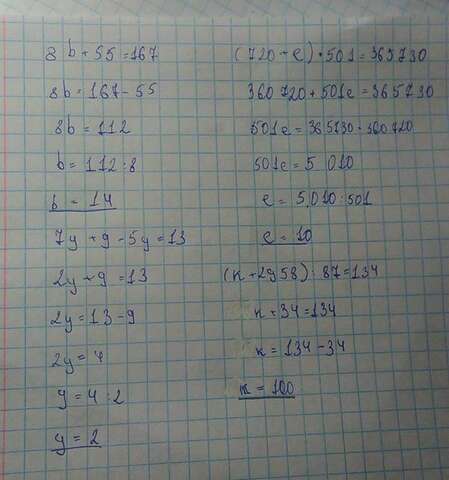 8b + 55 = 167
8b = 167 - 55
8b = 112
b = 112 : 8
b = 14
7y + 9 - 5y = 13
2y + 9 = 13
2y = 13 - 9
2y = 4
y = 4 : 2
y = 2
(720 + e) · 501 = 365730
360720 + 501e = 365730
501e = 365730 - 360720
501e = 5 010
e = 5,010 : 501
e = 10
(k + 2958) : 87 = 134
k + 34 = 134
k = 134 - 34
k = 100